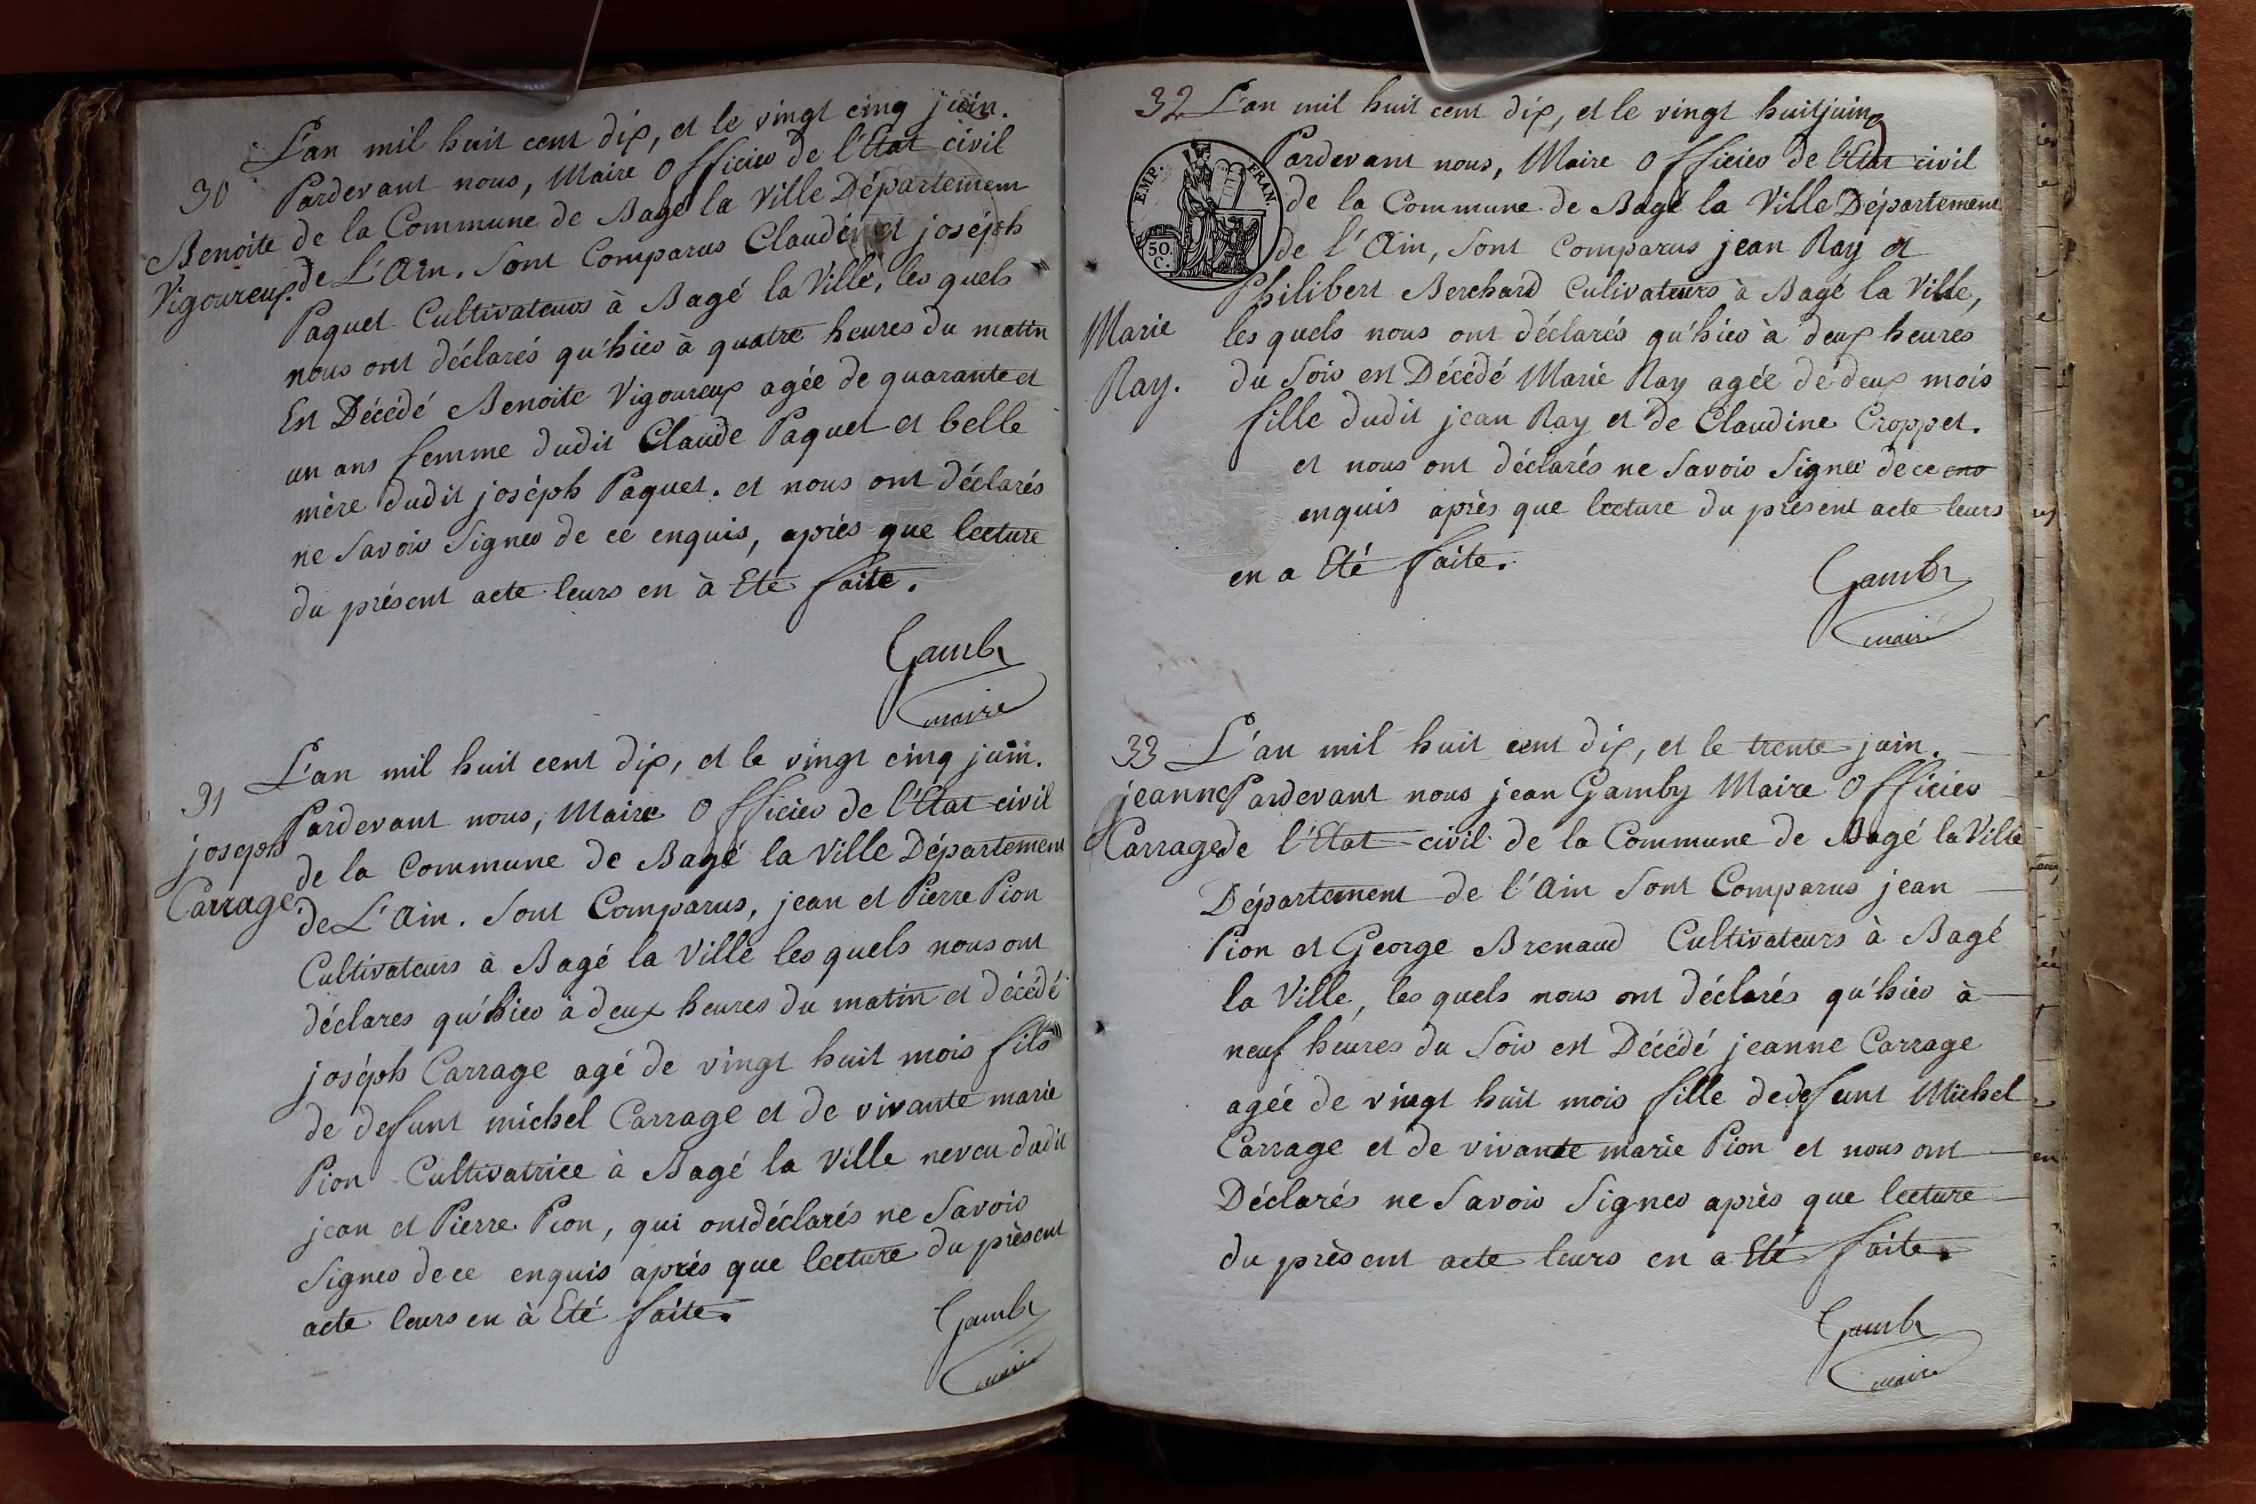 30
Benoite
Vigoureux.
L'an mil huit cent dix, et le vingt cinq juin.
Pardevant nous, Maire Officier de l'Etat civil
de la Commune de Bagé la Ville Département
de L'Ain. Sont Comparus Claude et joséph
Paquet Cultivateurs à Bagé la Ville, les quels
nous ont déclarés qu'hier à quatre heures du matin
Est Décédé Benoite Vigoureux agée de quarante et
un ans femme dudit Claude Paquet et belle
mère dudit joséph Paquet. et nous ont déclarés
ne Savoir Signer de ce enquis, après que lecture
du présent acte leurs en à Eté faite.
Gamby
maire
31
joseph
Carrage.
L'an mil huit cent dix, et le vingt cinq juin.
Pardevant nous, Maire Officier de l'Etat civil
de la Commune de Bagé la Ville Département
de L'Ain. Sont Comparus, jean et Pierre Pion
Cultivateurs à Bagé la Ville les quels nous ont
déclares qu'hier à deux heures du matin et décédé
joséph Carrage agé de vingt huit mois fils
de defunt michel Carrage et de vivante marie
Pion Cultivatrice à Bagé la Ville neveu dudit
jean et Pierre Pion, qui ont déclarés ne Savoir
Signer de ce enquis après que lecture du présent
acte leurs en à Eté faite.
Gamby
maire
32
EMP. FRAN.
50.
C.
Marie
Ray.
L'an mil huit cent dix, et le vingt huit juin
Pardevant nous, Maire Officier de l'Etat civil
de la Commune de Bagé la Ville Département
de l'Ain, Sont Comparus jean Ray et
Philibert Berchard Culivateurs à Bagé la Ville,
les quels nous ont déclarés qu'hier à deux heures
du Soir est Décédé Marie Ray agée de deux mois
fille dudit jean Ray et de Claudine Croppet.
et nous ont déclarés ne Savoir Signer de ce
enquis après que lecture du présent acte leurs
en a Eté faite.
Gamby
maire
33
jeanne
Carrage
L'an mil huit cent dix, et le trente juin.
Pardevant nous jean Gamby Maire Officier
de l'Etat civil de la Commune de Bagé la Ville
Département de l'Ain Sont Comparus jean
Pion et George Brenaud Cultivateurs à Bagé
la Ville, les quels nous ont déclarés qu'hier à
neuf heures du Soir est Décédé jeanne Carrage
agée de vingt huit mois fille de defunt Michel
Carrage et de vivante marie Pion et nous ont
Déclarés ne Savoir Signer après que lecture
du présent acte leurs en a Eté faite.
Gamby
maire